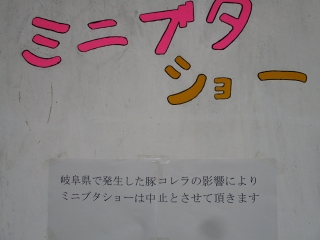 ミニブタ
ショー
岐阜県で発生した豚コレラの影響により
ミニブタショーは中止とさせて頂きます